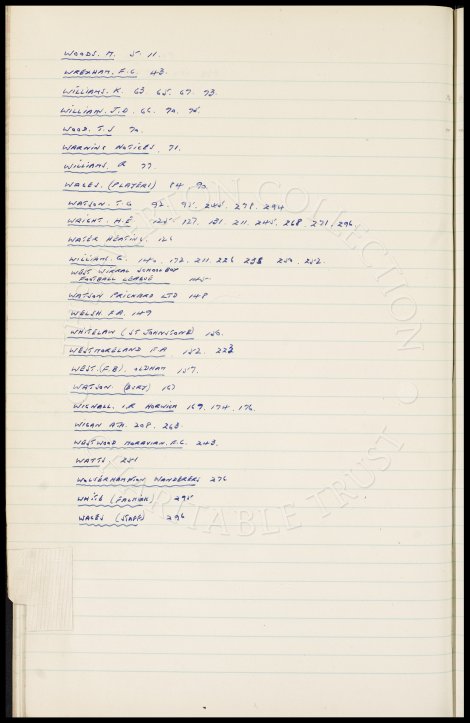 WOODS. M. 5. 11.
WREXHAM. F.C. 43.
WILLIAMS. K. 63 65. 67. 73.
WILLIAM. J.D. 66. 70. 75.
WOOD. T.S 70.
WARNING NOTICES. 71.
WILLIAMS. R 77.
WAGES. (PLAYERS) 84. 90.
WATSON. T.G 92. 95. 245. 278. 294
WRIGHT. H.E. 125. 127. 181. 211. 245. 268 271. 296.
WATER HEATING. 126
WILLIAMS. G. 140. 172. 211. 226 250. 252.
WEST WIRRAL SCHOOLBOY
FOOTBALL LEAGUE 145.
WATSON PRICHARD LTD 148
WELSH. F.A. 149
WHITELAW (ST JOHNSTONE) 150.
WESTMORELAND F.A. 152.
WEST. (F.B). OLDHAM 157.
WATSON. (BURY) 161
WIGNALL. I.R NORWICH 169. 174. 176.
WIGAN ATH. 208. 263.
WESTWOOD MORAVIAN. F.C. 243.
WATTS. 251
WOLVERHAMPTON WANDERERS 276
WHITE 295
WAGES (STAFF) 296
COLLECTION
CHARITABLE TRUST